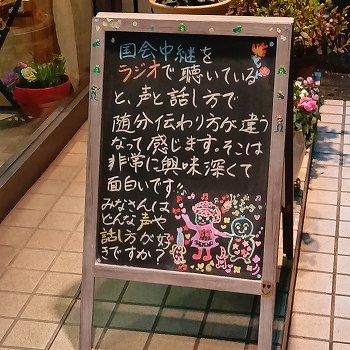 国会中継を
ラジオで聴いている
と、声と話し方で
随分伝わり方が違う
なって感じます。そこは
非常に興味深くて
面白いです!!
みなさんは
どんな声や
話し方が好
きですか?